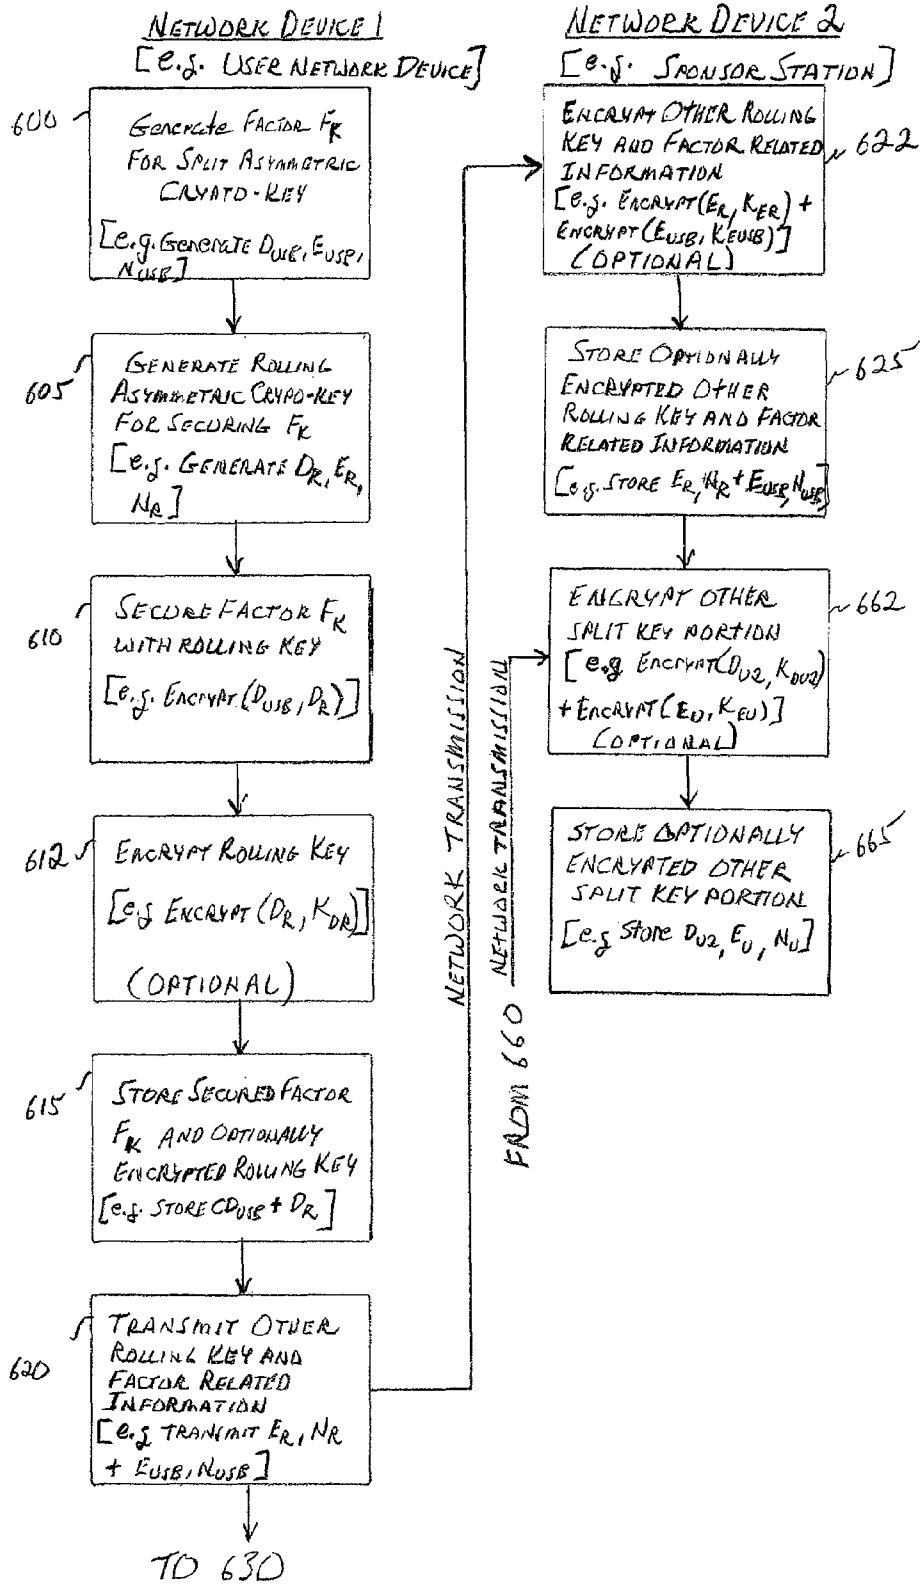 NETWORK DEVICE 1
[e.g. USER NETWORK DEVICE]
600
Generate FACTOR FK
FOR SPLIT ASYMMETRIC
CRYPTO-KEY
[e.g. Generate DUSB, EUSB,
NUSB]
605
GENERATE ROLLING
ASYMMETRIC CRYPO-KEY
FOR SECURING FK
[e.g. GENERATE DR, ER,
NR]
610
SECURE FACTOR FK
WITH ROLLING KEY
[e.g. ENCRYPT (DUSB, DR)]
612
ENCRYPT ROLLING KEY
[e.g ENCRYPT (DR, KDR)]
(OPTIONAL)
615
STORE SECURED FACTOR
FK AND OPTIONALLY
ENCRYPTED ROLLING KEY
[e.g. STORE CDUSB + DR]
620
TRANSMIT OTHER
ROLLING KEY AND
FACTOR RELATED
INFORMATION
[e.g TRANSMIT ER, NR
+ EUSB, NUSB]
TO 630
NETWORK TRANSMISSION
FROM 660 NETWORK TRANSMISSION
NETWORK DEVICE 2
[e.g. SPONSOR STATION]
622
ENCRYPT OTHER ROLLING
KEY AND FACTOR RELATED
INFORMATION
[e.g. ENCRYPT(ER, KER) +
ENCRYPT(EUSB, KEUSB)]
(OPTIONAL)
625
STORE OPTIONALLY
ENCRYPTED OTHER
ROLLING KEY AND FACTOR
RELATED INFORMATION
[e.g. STORE ER, NR + EUSB, NUSB]
662
ENCRYPT OTHER
SPLIT KEY PORTION
[e.g ENCRYPT(DU2, KDU2)
+ ENCRYPT(EU, KEU)]
(OPTIONAL)
665
STORE OPTIONALLY
ENCRYPTED OTHER
SPLIT KEY PORTION
[e.g Store DU2, EU, NU]